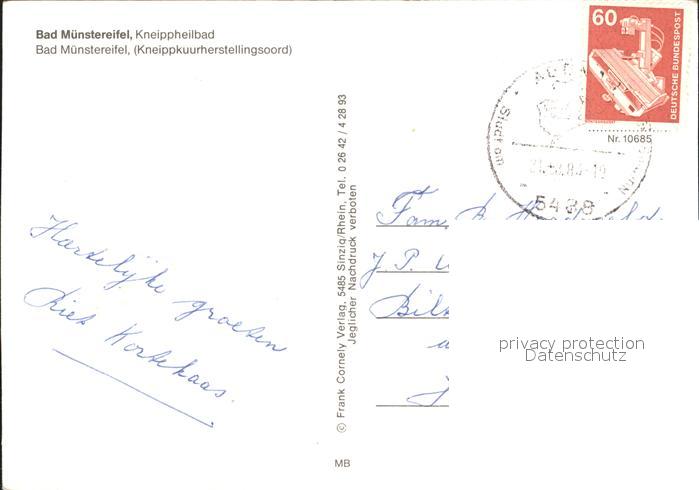 Bad Münstereifel, Kneippheilbad
Bad Münstereifel, (Kneippkuurherstellingsoord)
60
DEUTSCHE BUNDESPOST
Nr. 10685
5438
Hartelijke groeten
Riet Kortekaas.
© Frank Cornely Verlag, 5485 Sinzig/Rhein, Tel. 0 26 42 / 4 28 93
Jeglicher Nachdruck verboten
Fam.
J. P.
privacy protection
Datenschutz
MB